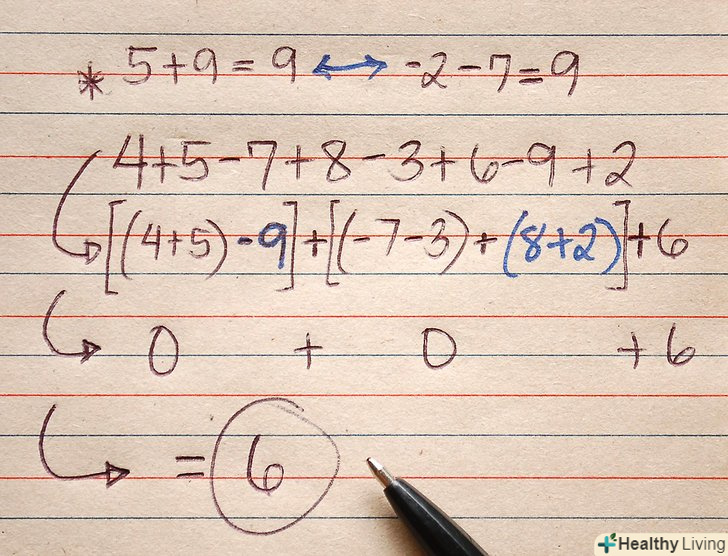 * 5+9=9 ↔ -2-7=9
4+5-7+8-3+6-9+2
[(4+5)-9]+[(-7-3)+(8+2)]+6
0 + 0 +6
=6
Healthy Living